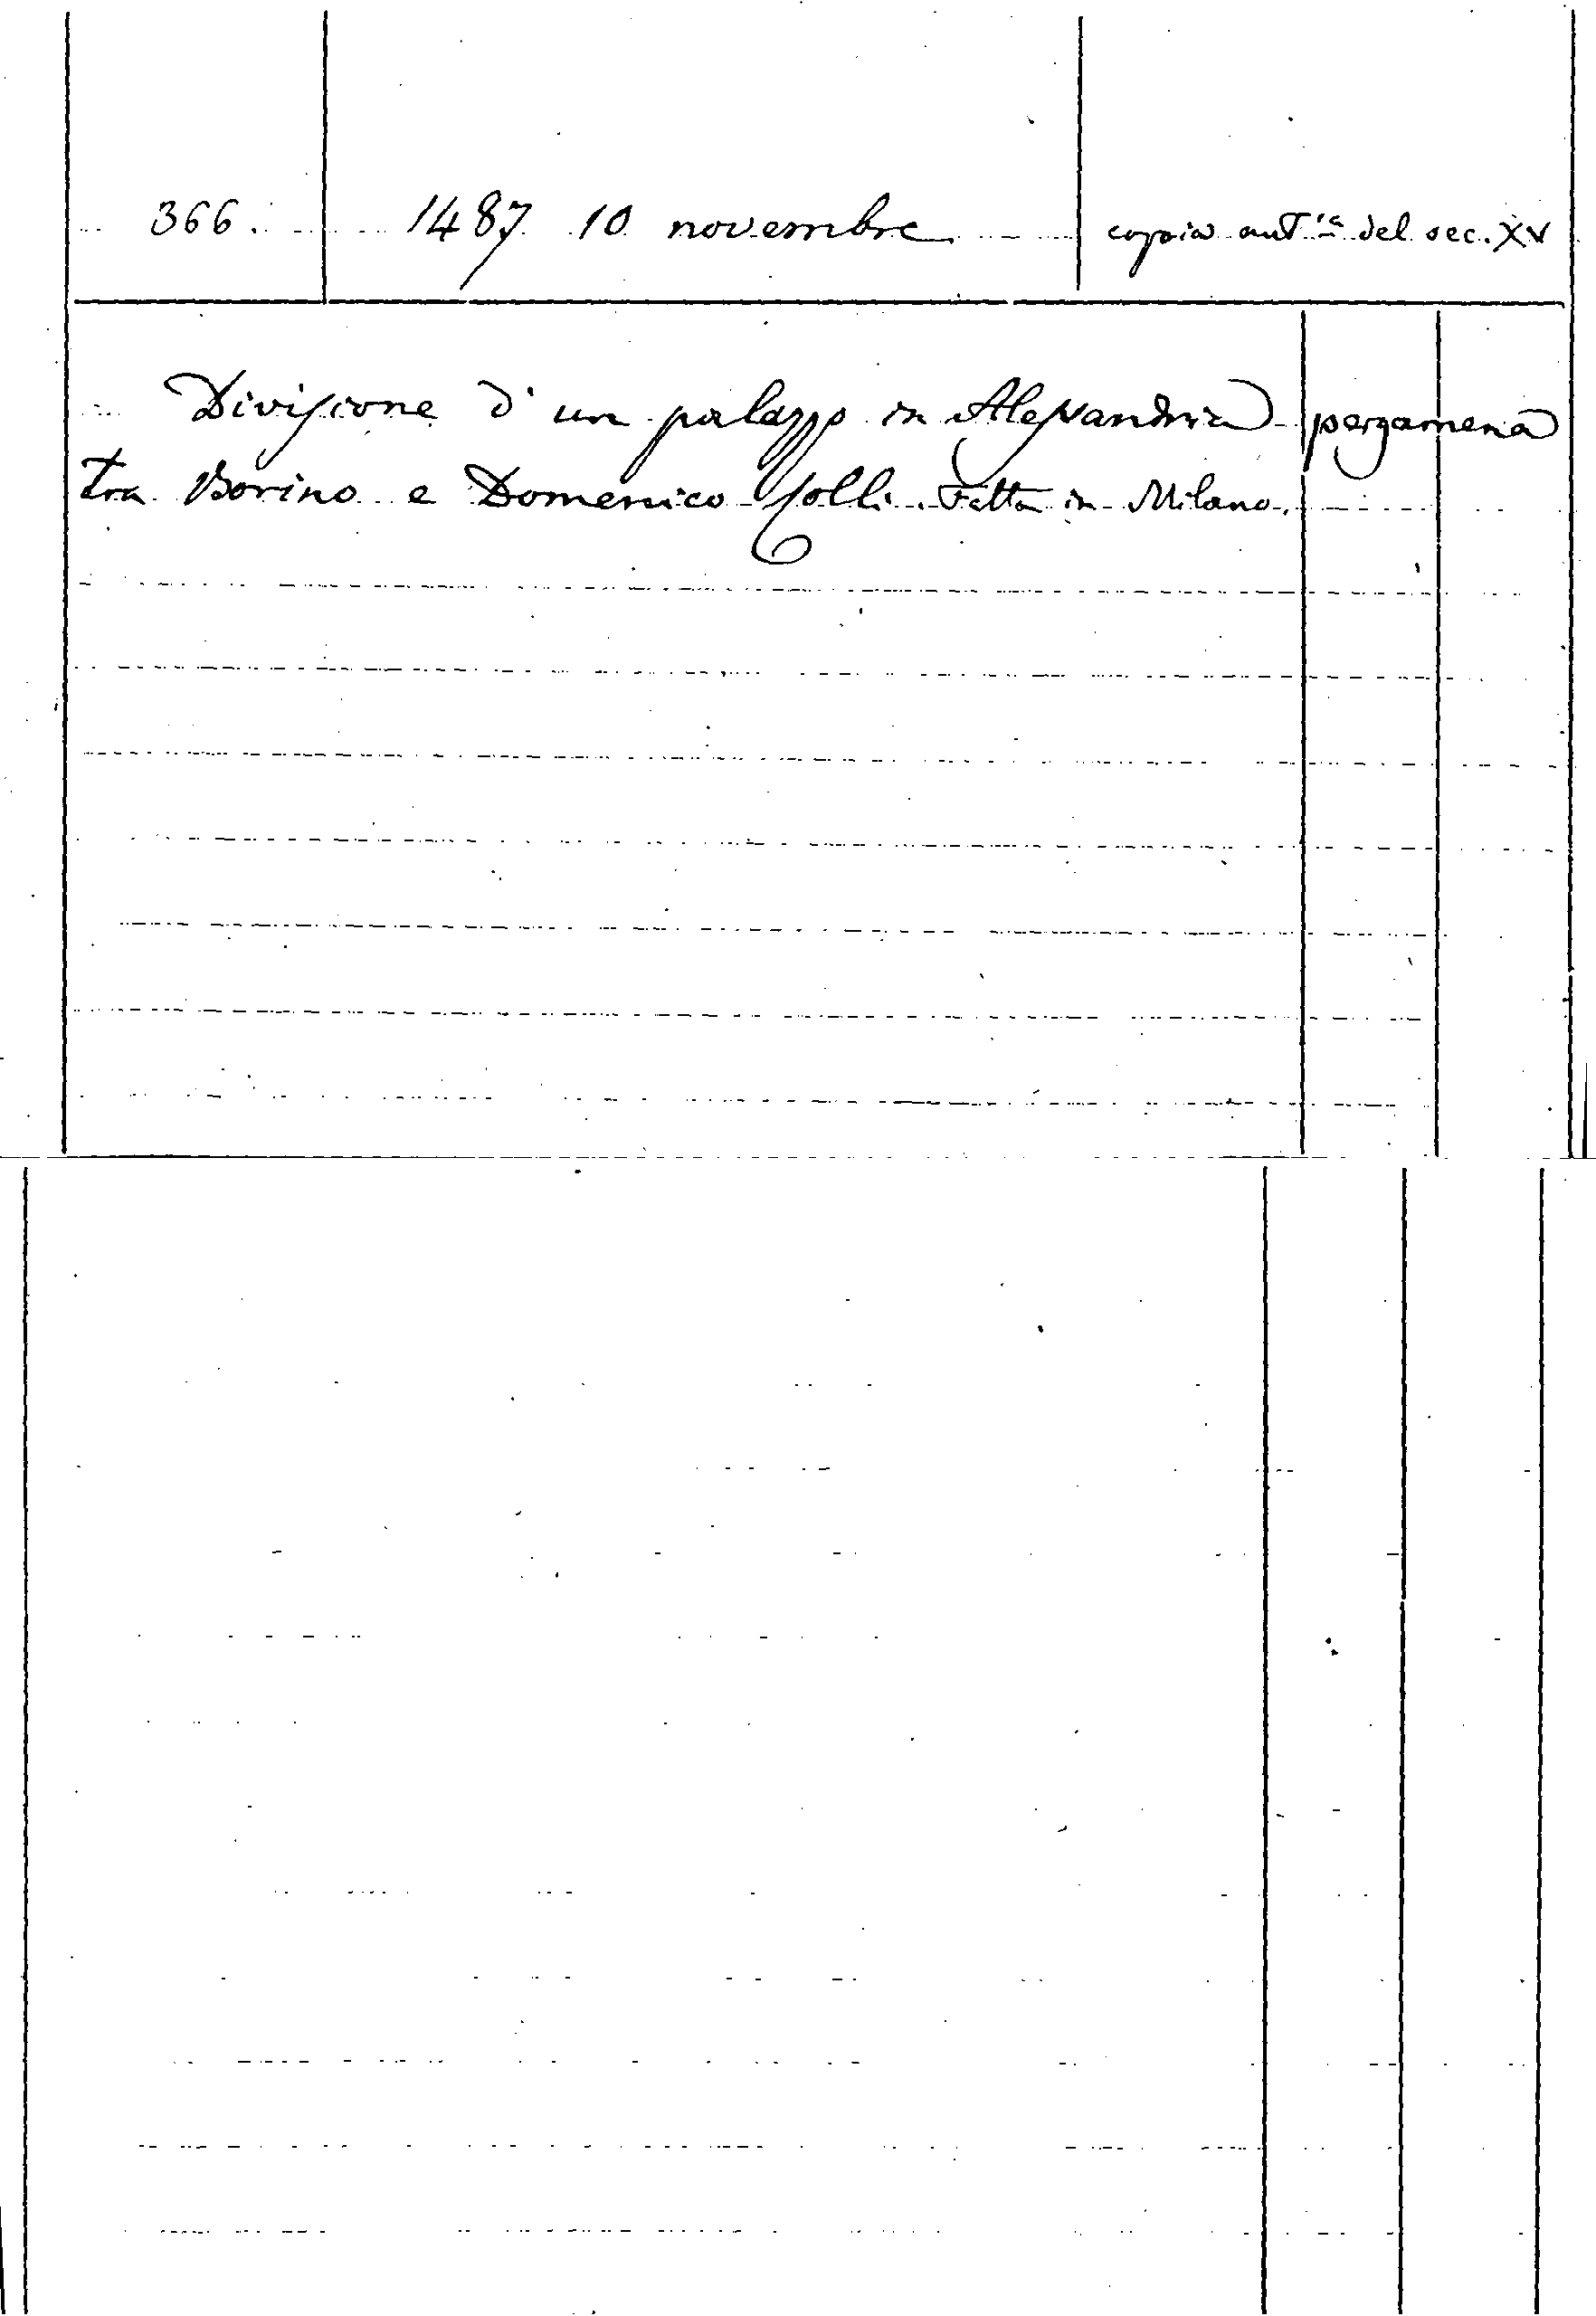 366. 1487 10 novembre copia aut.ca del sec. XV
Divisione d'un palazzo in Alessandria pergamena
tra Borino e Domenico Colli. Fatta in Milano.